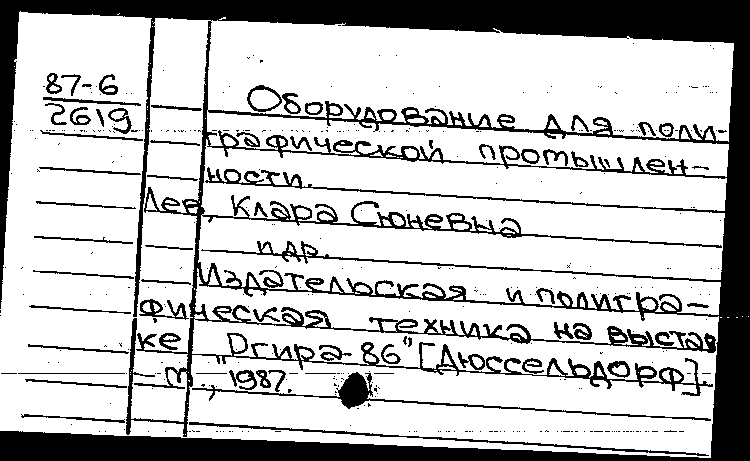 87-6
2619
Оборудование для поли-
графической промышлен-
ности.
Лев, Клара Сюневна
и др.
Издательская и полигра-
фическая техника на выстав
ке "Dгира-86" [Дюссельдорф].
М., 1987.